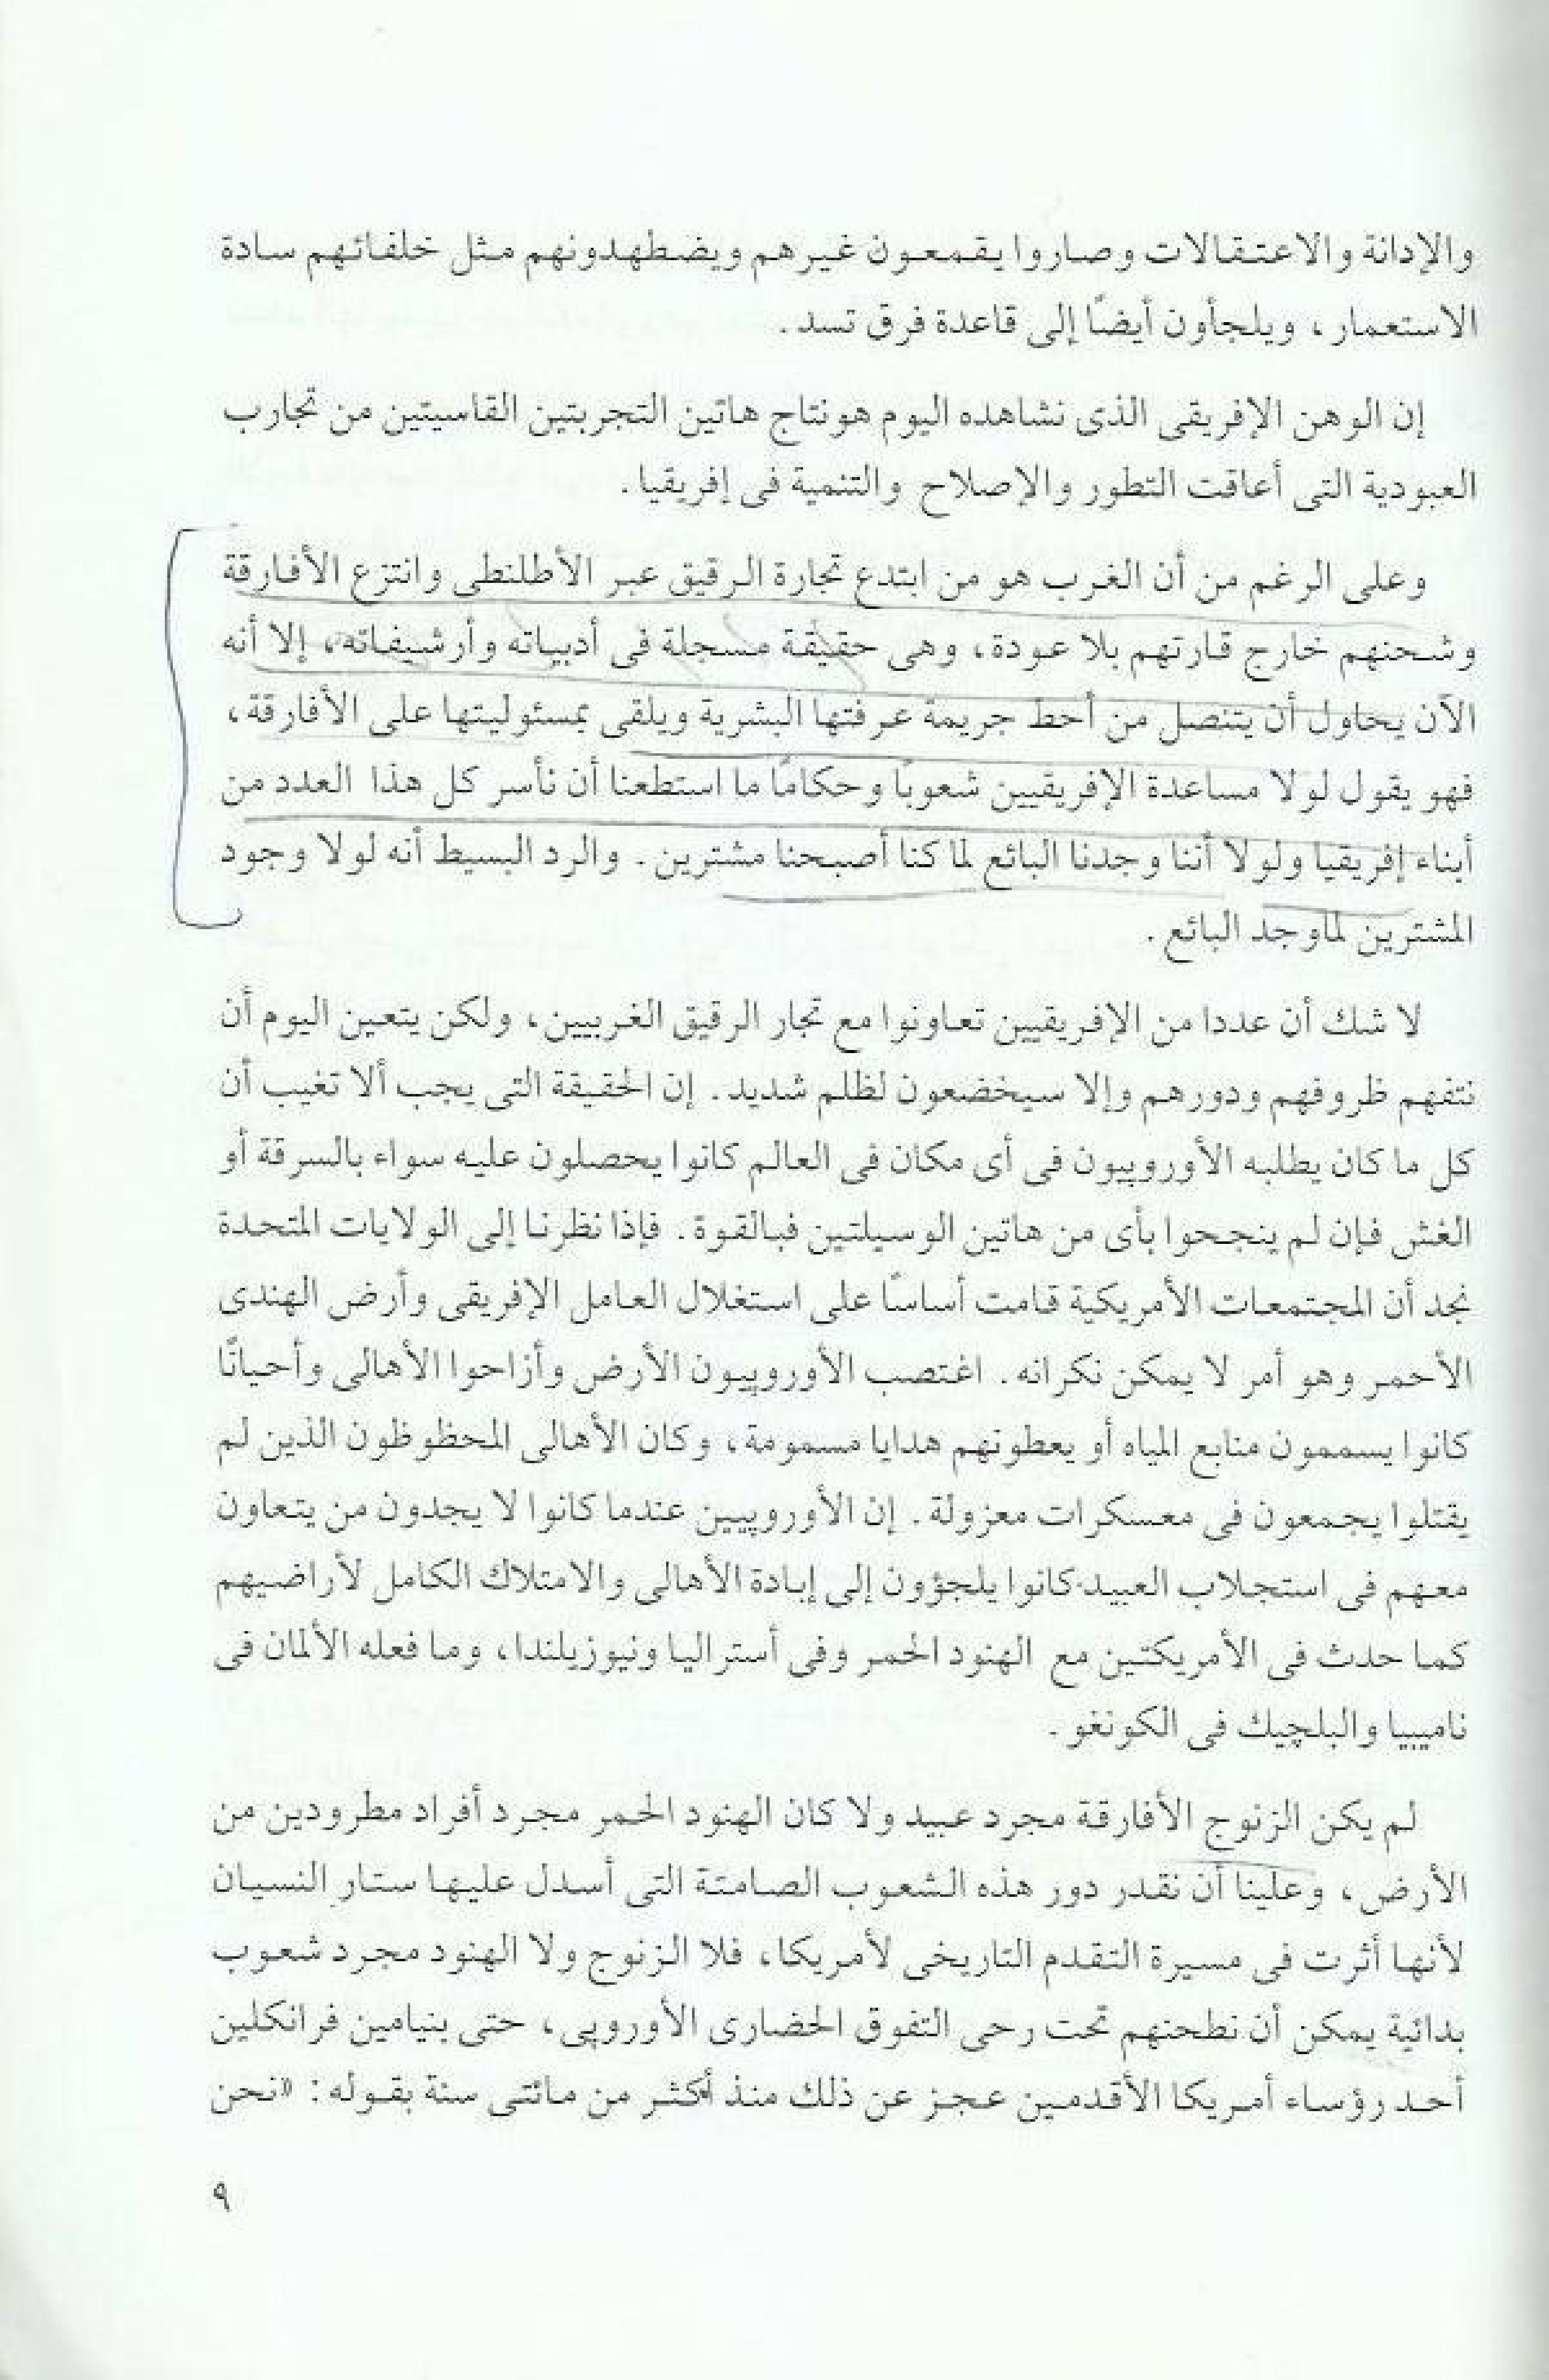 والإدانة والاعتقالات وصاروا يقمعون غيرهم ويضطهدونهم مثل خلفائهم سادة
الاستعمار، ويلجأون أيضًا إلى قاعدة فرق تسد.
إن الوهن الإفريقى الذى نشاهده اليوم هو نتاج هاتين التجربتين القاسيتين من تجارب
العبودية التى أعاقت التطور والإصلاح والتنمية فى إفريقيا.
وعلى الرغم من أن الغرب هو من ابتدع تجارة الرقيق عبر الأطلنطى وانتزع الأفارقة
وشحنهم خارج قارتهم بلا عودة، وهى حقيقة مسجلة فى أدبياته وأرشيفاته، إلا أنه
الآن يحاول أن يتنصل من أحط جريمة عرفتها البشرية ويلقى بمسئوليتها على الأفارقة،
فهو يقول لولا مساعدة الإفريقيين شعوبًا وحكامًا ما استطعنا أن نأسر كل هذا العدد من
أبناء إفريقيا ولولا أننا وجدنا البائع لما كنا أصبحنا مشترين. والرد البسيط أنه لولا وجود
المشترين لما وجد البائع.
لا شك أن عددا من الإفريقيين تعاونوا مع تجار الرقيق الغربيين، ولكن يتعين اليوم أن
نتفهم ظروفهم ودورهم وإلا سيخضعون لظلم شديد. إن الحقيقة التى يجب ألا تغيب أن
كل ما كان يطلبه الأوروبيون فى أى مكان فى العالم كانوا يحصلون عليه سواء بالسرقة أو
الغش فإن لم ينجحوا بأى من هاتين الوسيلتين فبالقوة. فإذا نظرنا إلى الولايات المتحدة
نجد أن المجتمعات الأمريكية قامت أساسًا على استغلال العامل الإفريقى وأرض الهندى
الأحمر وهو أمر لا يمكن نكرانه. اغتصب الأوروبيون الأرض وأزاحوا الأهالى وأحيانًا
كانوا يسممون منابع المياه أو يعطونهم هدايا مسمومة، وكان الأهالى المحظوظون الذين لم
يقتلوا يجمعون فى معسكرات معزولة. إن الأوروبيين عندما كانوا لا يجدون من يتعاون
معهم فى استجلاب العبيد كانوا يلجؤون إلى إبادة الأهالى والامتلاك الكامل لأراضيهم
كما حدث فى الأمريكتين مع الهنود الحمر وفى أستراليا ونيوزيلندا، وما فعله الألمان فى
ناميبيا والبلچيك فى الكونغو.
لم يكن الزنوج الأفارقة مجرد عبيد ولا كان الهنود الحمر مجرد أفراد مطرودين من
الأرض، وعلينا أن نقدر دور هذه الشعوب الصامتة التى أسدل عليها ستار النسيان
لأنها أثرت فى مسيرة التقدم التاريخى لأمريكا، فلا الزنوج ولا الهنود مجرد شعوب
بدائية يمكن أن نطحنهم تحت رحى التفوق الحضارى الأوروبى، حتى بنيامين فرانكلين
أحد رؤساء أمريكا الأقدمين عجز عن ذلك منذ أكثر من مائتى سنة بقوله: «نحن
٩